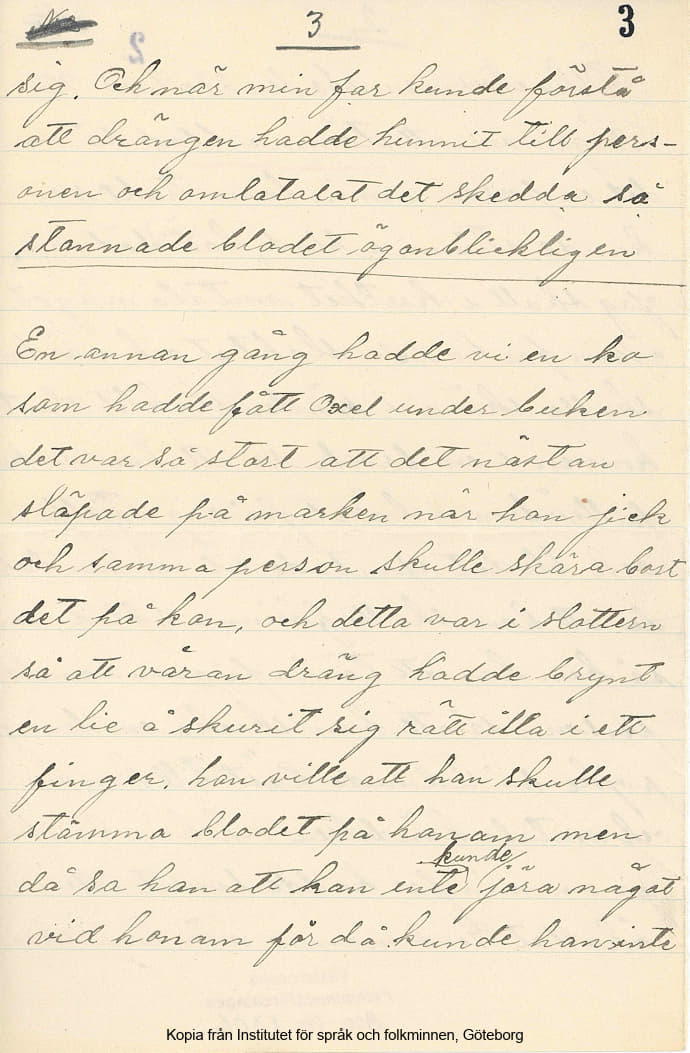 3 3
sig. Och när min far kunde förstå
att drängen hadde hunnit till pers-
onen och omtalat det skedda så
stannade blodet ögonblickligen
En annan gång hadde vi en ko
som hadde fått Oxel under buken
det var så stort att det nästan
släpade på marken när hon jick
och samma person skulle skära bort
det på kon, och detta var i slottern
så att våran dräng hadde brynt
en lie å skurit sig rätt illa i ett
finger. han ville att han skulle
stämma blodet på honom men
kunde
då sa han att han ente jöra något
vid honom för då kunde han inte
Kopia från Institutet för språk och folkminnen, Göteborg